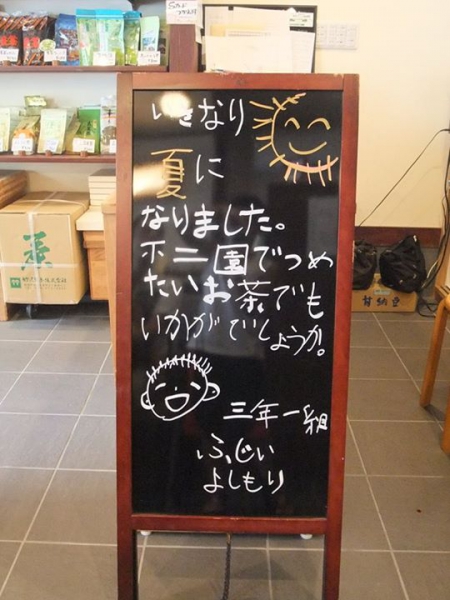 いきなり
夏に
なりました。
ホ二園でつめ
たいお茶でも
いかがでしょうか。
三年一組
ふじい
よしもり
茶
甘納豆